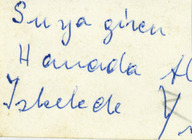 Suya giren
Havada al
İskelede